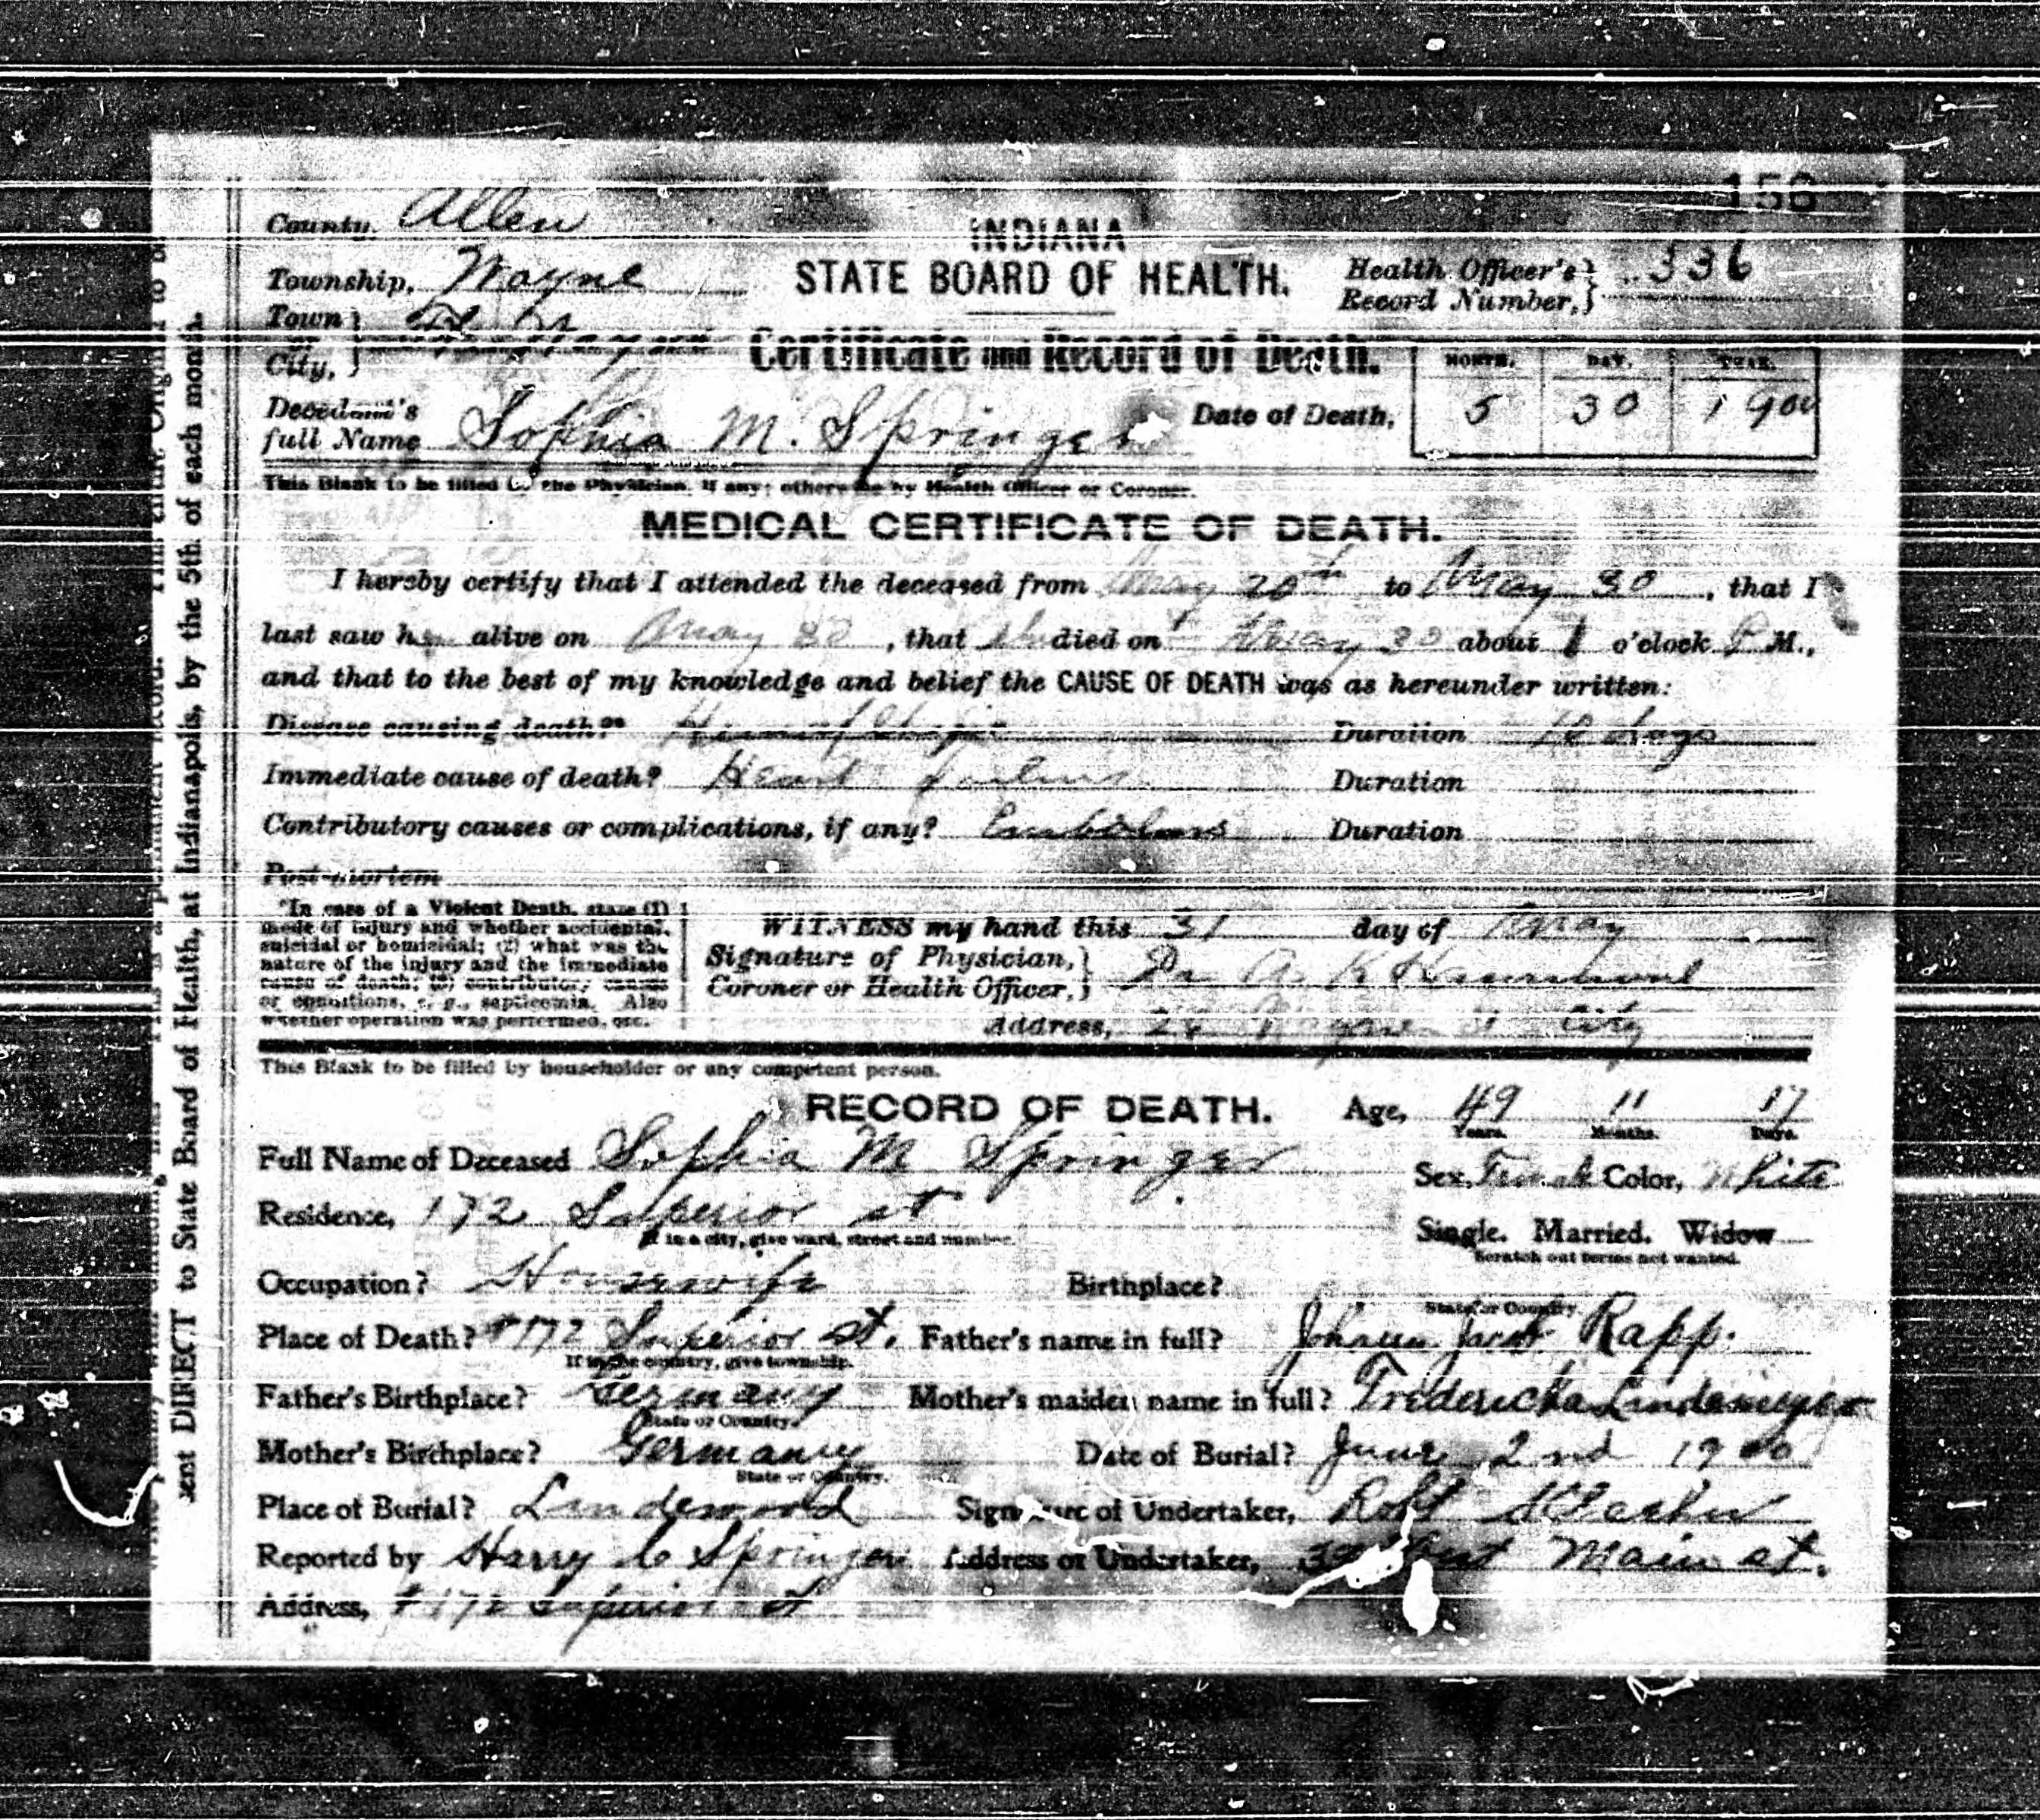 156
County, Allen
INDIANA
Township, Wayne
STATE BOARD OF HEALTH.
Health Officer's Record Number, 336
Town or City, Ft Wayne
Certificate and Record of Death.
MONTH. DAY. YEAR.
Decedent's full Name Sophia M. Springer
Date of Death, 5 30 1900
This Blank to be filled by the Physician, if any; otherwise by Health Officer or Coroner.
MEDICAL CERTIFICATE OF DEATH.
I hereby certify that I attended the deceased from May 20th to May 30, that I
last saw her alive on May, that she died on May 30 about 1 o'clock P.M.,
and that to the best of my knowledge and belief the CAUSE OF DEATH was as hereunder written:
Disease causing death?* Duration days
Immediate cause of death? Heart failure Duration
Contributory causes or complications, if any? Embolus Duration
Post-mortem
*In case of a Violent Death, state (1)
mode of injury and whether accidental,
suicidal or homicidal; (2) what was the
nature of the injury and the immediate
cause of death; (3) contributory causes
or conditions, e. g., septicemia. Also
whether operation was performed, etc.
WITNESS my hand this 31 day of May
Signature of Physician, Coroner or Health Officer, Dr A K
Address, Wayne St City
This Blank to be filled by householder or any competent person.
RECORD OF DEATH.
Age, 49 11 17
Years. Months. Days.
Full Name of Deceased Sophia M Springer
Sex, Female Color, White
Residence, 172 Superior st
If in a city, give ward, street and number.
Single. Married. Widow
Scratch out terms not wanted.
Occupation? Housewife
Birthplace?
State or Country.
Place of Death? #172 Superior st.
If in the country, give township.
Father's name in full? Johann Jacob Rapp.
Father's Birthplace? Germany
State or Country.
Mother's maiden name in full? Fredericka Lindemeyer
Mother's Birthplace? Germany
State or Country.
Date of Burial? June 2nd 1900
Place of Burial? Lindenwood
Signature of Undertaker, Robt
Reported by Harry C Springer
Address of Undertaker, Main st.
Address, #172 Superior st
sent DIRECT to State Board of Health, at Indianapolis, by the 5th of each month.